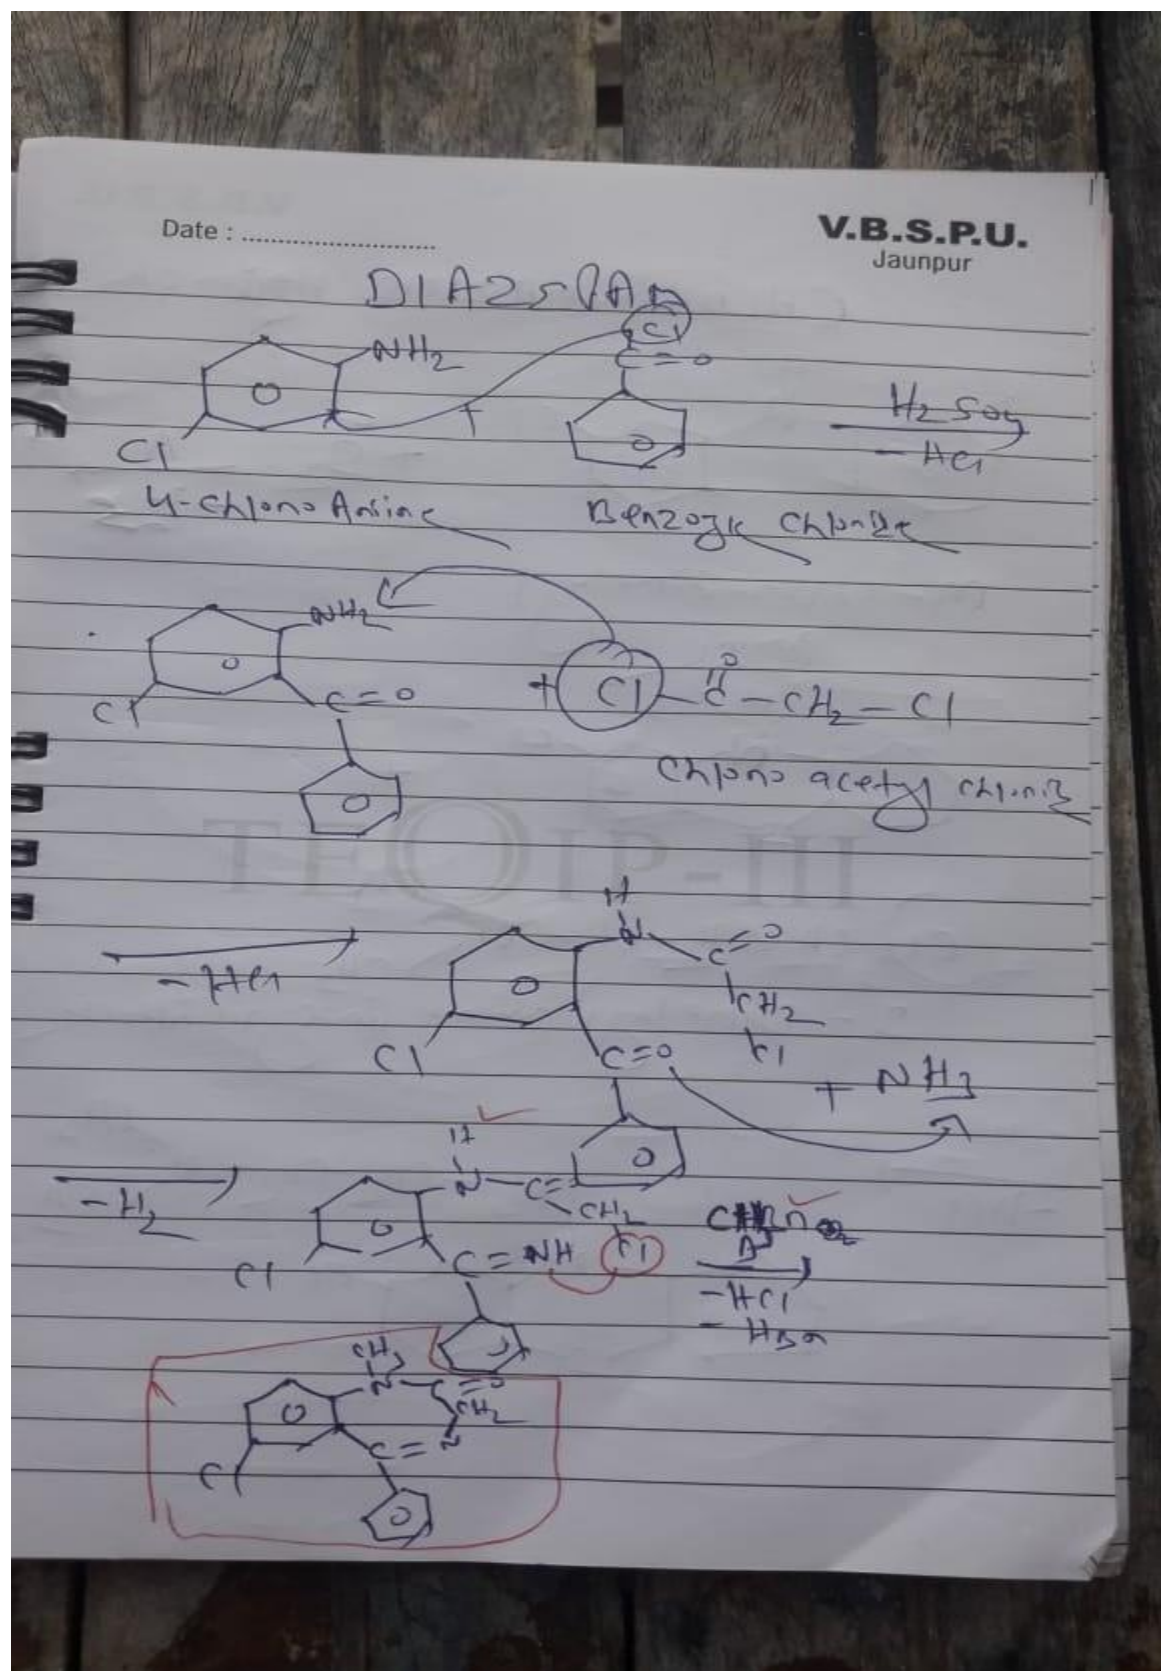 Date : ............................
V.B.S.P.U.
Jaunpur
DIAZEPAM
NH2
Cl
C=O
Cl
+
H2SO4
-HCl
4-chloro Aniline
Benzoyl chloride
NH2
C=O
Cl
+ Cl - C - CH2 - Cl
O
chloro acetyl chloride
TEQIP-III
-HCl
H
N
C=O
CH2
Cl
Cl
C=O
+ NH3
-H2
H
N - C =
CH2
Cl
C = NH
Cl
-HCl
- HBr
CH3
N - C = O
CH2
C = N
Cl